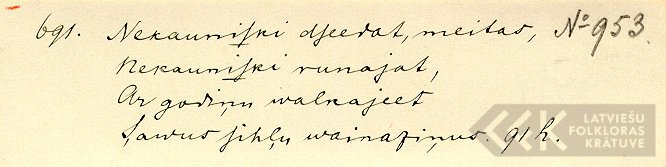 691. Nekauniſki dſeedat, meitas, № 953.
Nekauniſki runajat,
Ar godiņu walkajeet
Sawus ſihļu wainaziņus. 91 h.
LATVIEŠU
FOLKLORAS
KRĀTUVE